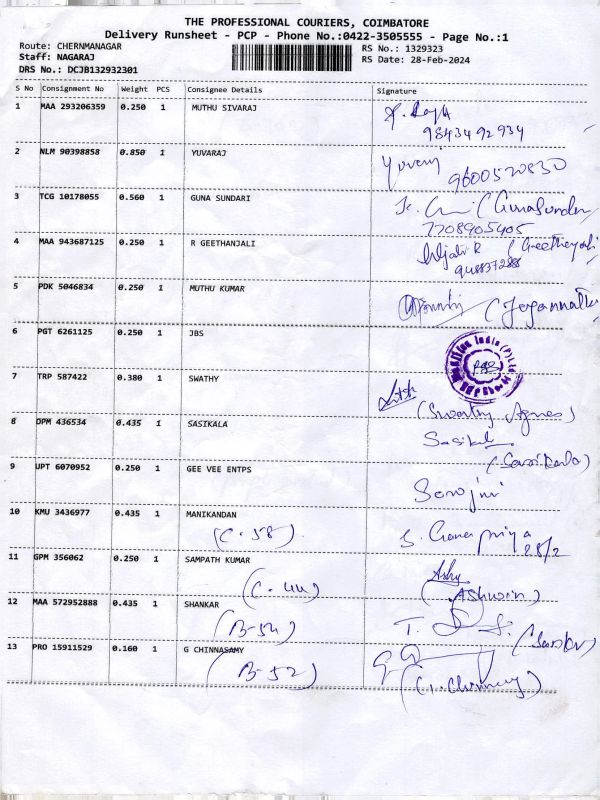 THE PROFESSIONAL COURIERS, COIMBATORE
Delivery Runsheet - PCP - Phone No.:0422-3505555 - Page No.:1
Route: CHERNMANAGAR RS No.: 1329323
Staff: NAGARAJ RS Date: 28-Feb-2024
DRS No.: DCJB132932301
S No Consignment No Weight PCS Consignee Details Signature
1 MAA 293206359 0.250 1 MUTHU SIVARAJ
9843492934
2 NLM 90398858 0.850 1 YUVARAJ Yuveraj
9600520830
3 TCG 10178055 0.560 1 GUNA SUNDARI (GunaSundari
7708905405
4 MAA 943687125 0.250 1 R GEETHANJALI (Geethanjali
5 PDK 5046834 0.250 1 MUTHU KUMAR
6 PGT 6261125 0.250 1 JBS
India (P) Ltd
7 TRP 587422 0.380 1 SWATHY
(Swathy Agnes)
8 DPM 436534 0.435 1 SASIKALA Sasikala
(Sasikala)
9 UPT 6070952 0.250 1 GEE VEE ENTPS Sarojini
10 KMU 3436977 0.435 1 MANIKANDAN
(C-58) 28/2
11 GPM 356062 0.250 1 SAMPATH KUMAR
(C-44) (Ashwin)
12 MAA 572952888 0.435 1 SHANKAR
(B-54)
13 PRO 15911529 0.160 1 G CHINNASAMY
(B-52)